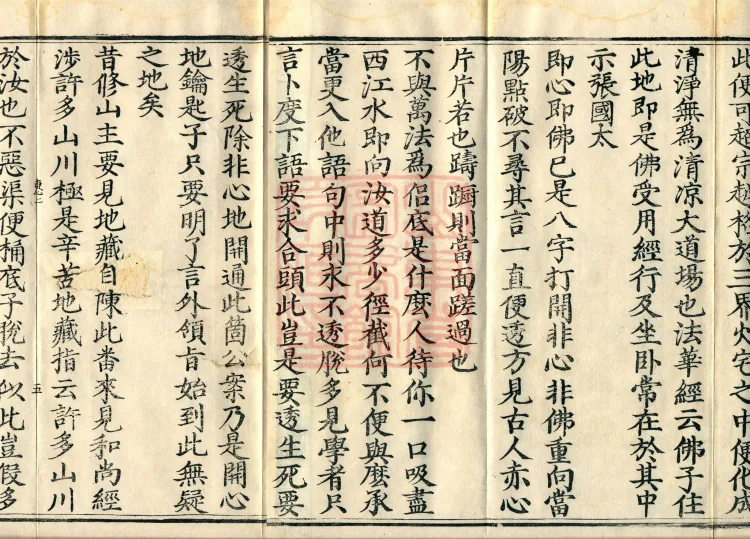 此便可越宗越格於三界火宅之中便化成
清淨無為清凉大道場也法華經云佛子住
此地即是佛受用經行及坐卧常在於其中
示張國太
即心即佛已是八字打開非心非佛重向當
陽點破不尋其言一直便透方見古人赤心
片片若也躊躕則當面蹉過也
不與萬法為侶底是什麼人待你一口吸盡
西江水即向汝道多少徑截何不便與麼承
當更入他語句中則求不透脫多見學者只
言卜度下語要求合頭此豈是要透生死要
透生死除非心地開通此箇公案乃是開心
地鑰匙子只要明了言外領旨始到此無疑
之地矣
昔修山主要見地藏自陳此番來見和尚經
涉許多山川極是辛苦地藏指云許多山川
於汝也不惡渠便桶底子脫去似此豈假多
五